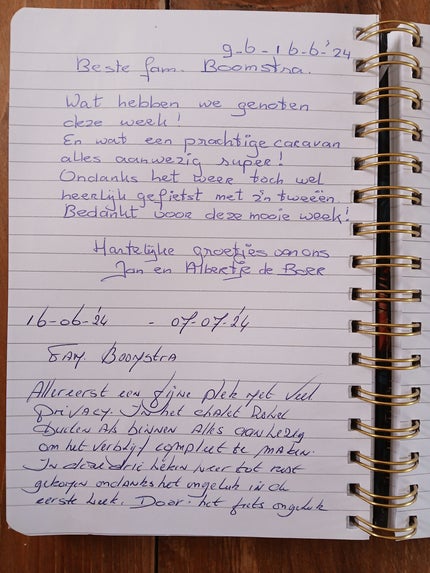 9-6-16-6-'24
Beste fam. Boomstra.
Wat hebben we genoten
deze week!
En wat een prachtige caravan
alles aanwezig super!
Ondanks het weer toch wel
heerlijk gefietst met z'n tweeën.
Bedankt voor deze mooie week!
Hartelijke groetjes van ons
Jan en Albertje de Boer
16-06-'24 - 07-07-'24
Fam Boomstra
Allereerst een fijne plek met veel
privacy. In het chalet zowel
buiten als binnen alles aanwezig
om het verblijf compleet te maken.
In deze drie weken weer tot rust
gekomen ondanks het ongeluk in de
eerste week. Door het fiets ongeluk